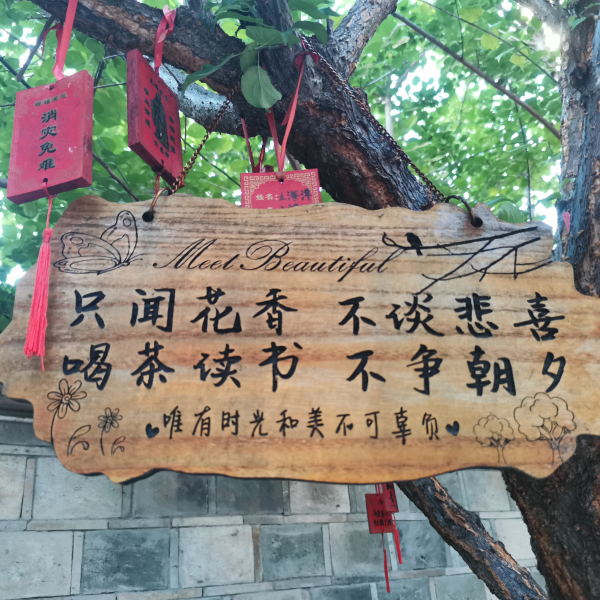 消灾免难
Meet Beautiful
只闻花香 不谈悲喜
喝茶读书 不争朝夕
唯有时光和美不可辜负